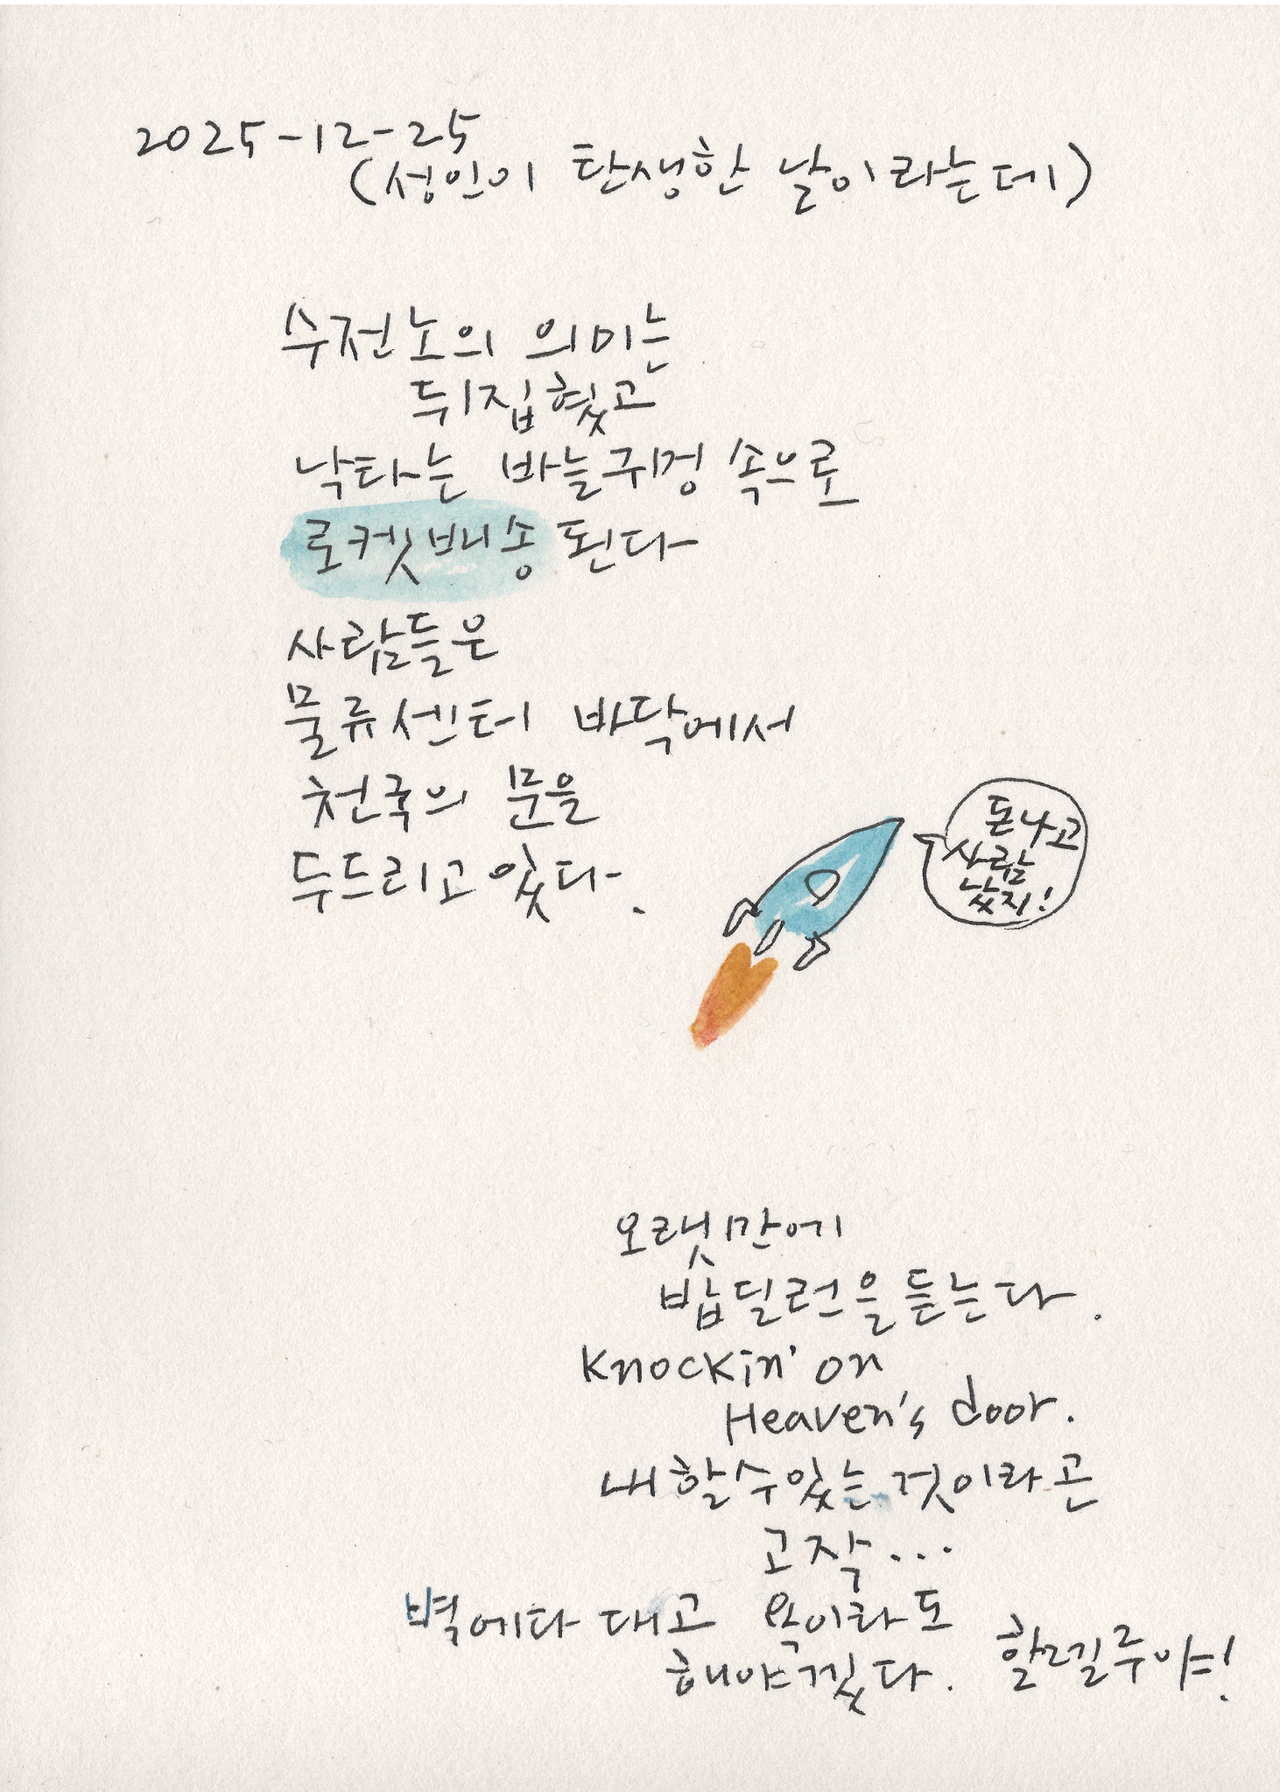 2025-12-25
(성인이 탄생한 날이라는데)
수전노의 의미는
뒤집혔고
낙타는 바늘귀멍 속으로
로켓배송 된다
사람들은
물류센터 바닥에서
천국의 문을
두드리고 있다.
돈나고
사람
났지!
오랫만에
밥딜런을 듣는다.
Knockin' on
Heaven's door.
내 할 수 있는 것이라곤
고작...
벽에다 대고 욕이라도
해야겠다. 할렐루야!